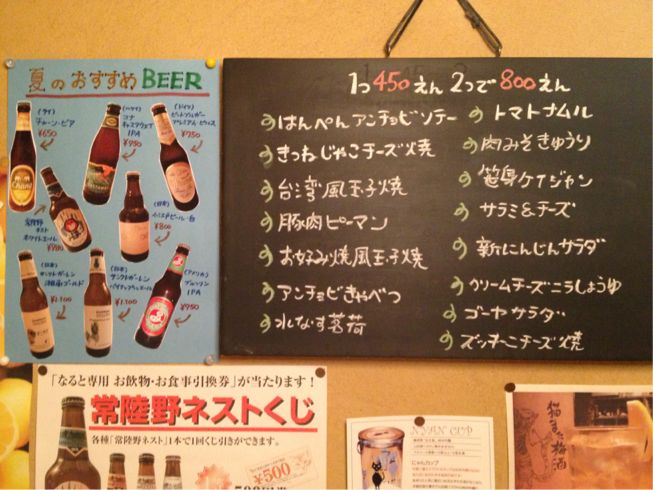 夏のおすすめBEER
(タイ)
チャーン・ビア
¥650
(ハワイ)
コナ
キャスタウェイ
IPA
¥950
(ドイツ)
¥950
常陸野
ネスト
ホワイトエール
¥900
(日本)
¥800
(日本)
サンクトガーレン
湘南ゴールド
¥1,100
(日本)
サンクトガーレン
¥1,100
(アメリカ)
ブルックリン
IPA
¥950
1つ450えん 2つで800えん
はんぺんアンチョビソテー
きつねじゃこチーズ焼
台湾風玉子焼
豚肉ピーマン
お好み焼風玉子焼
アンチョビきゃべつ
水なす茗荷
トマトナムル
肉みそきゅうり
笹身ケイジャン
サラミ&チーズ
新にんじんサラダ
クリームチーズニラしょうゆ
ゴーヤサラダ
ズッキーニチーズ焼
「なると専用 お飲物・お食事引換券」が当たります!
常陸野ネストくじ
各種「常陸野ネスト」1本で1回くじ引きができます。
¥500
NYAN' CUP
にゃんカップ
猫また梅酒